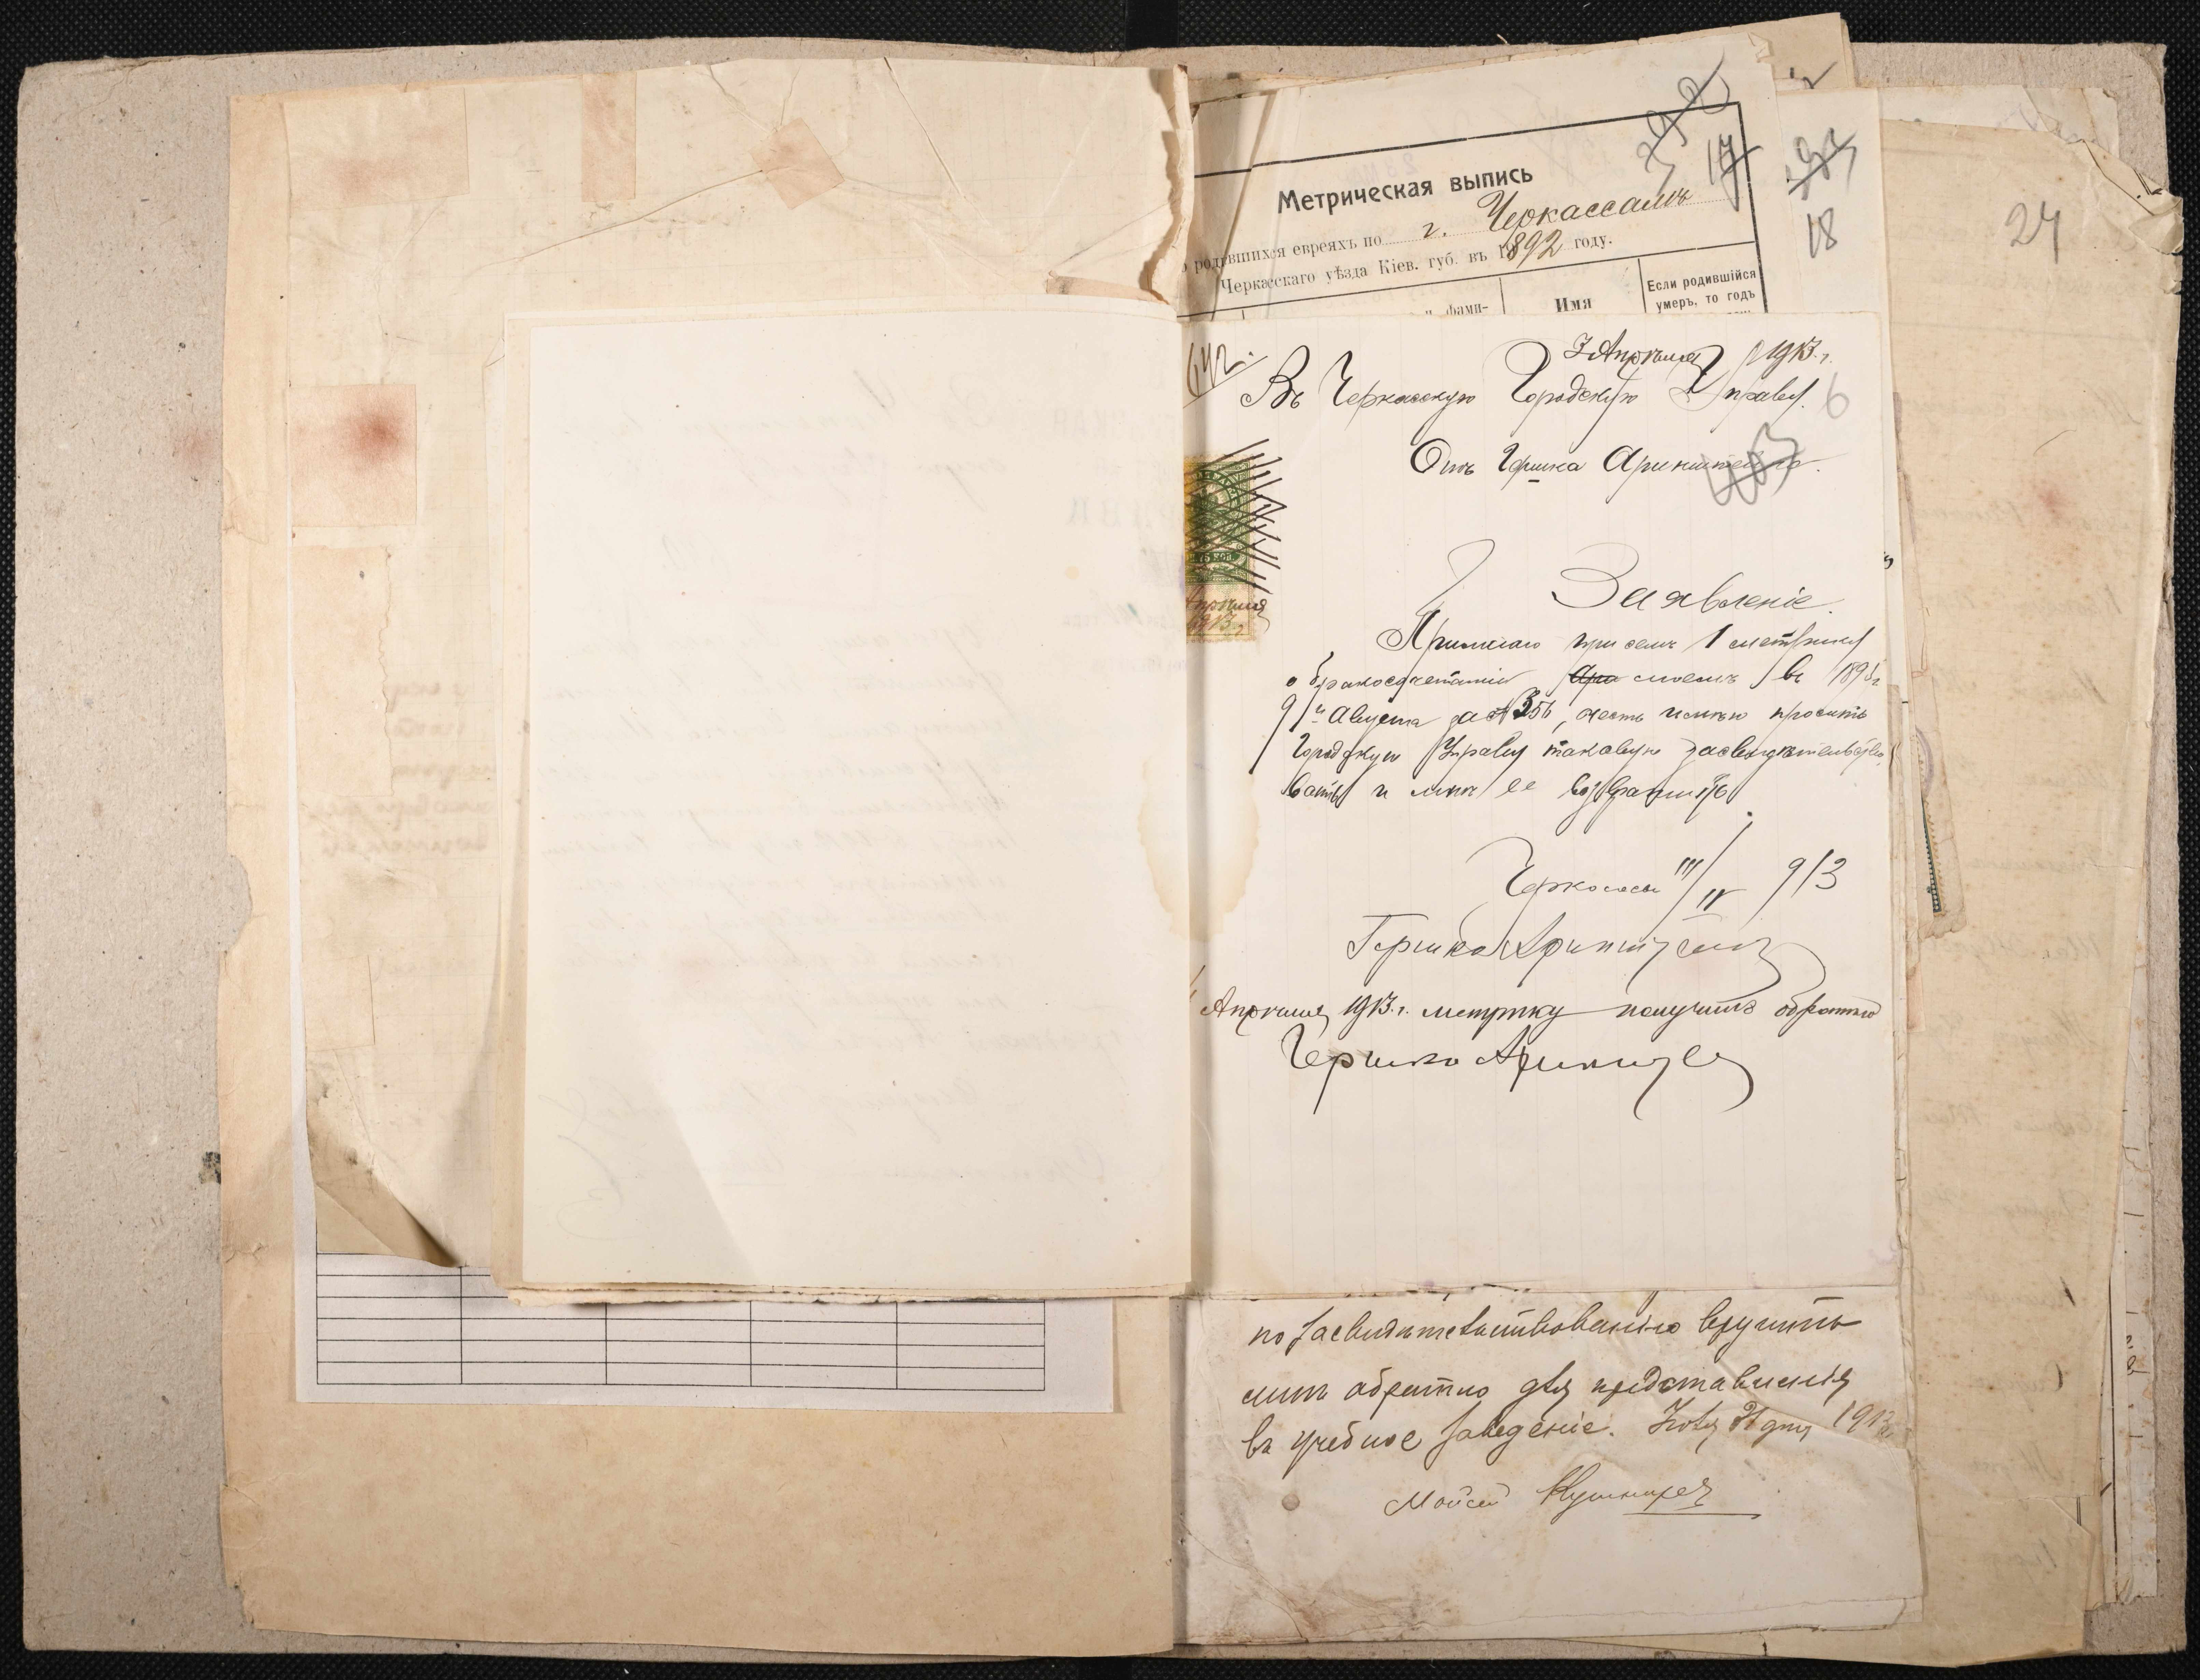 Метрическая выпись
родившихся евреяхъ по г. Черкассамъ
Черкасскаго уѣзда Кіев. губ. въ 1892 году.
и фами-
Имя
Если родившійся
умеръ, то годъ
17
18
24
642.
3 Апрѣля 1913 г.
Въ Черкасскую Городскую Управу.
6
Отъ Гершка Аринштейна.
75 коп.
Апрѣля
1913 г.
Заявленіе.
Прилагаю при семъ 1 метрику
о бракосочетаніи моемъ въ
9го Августа за № 356, честь имѣю просить
Городскую Управу таковую засвидѣтельство
вать и мнѣ ее возвратить.
Черкассы III/IV 913
Гершко
Апрѣля 1913 г. метрику получилъ обратно
Гершко
по засвидѣтельствованію вручить
мнѣ обратно для представленія
въ учебное заведеніе. дня 1913
Мойсей Кушнирев